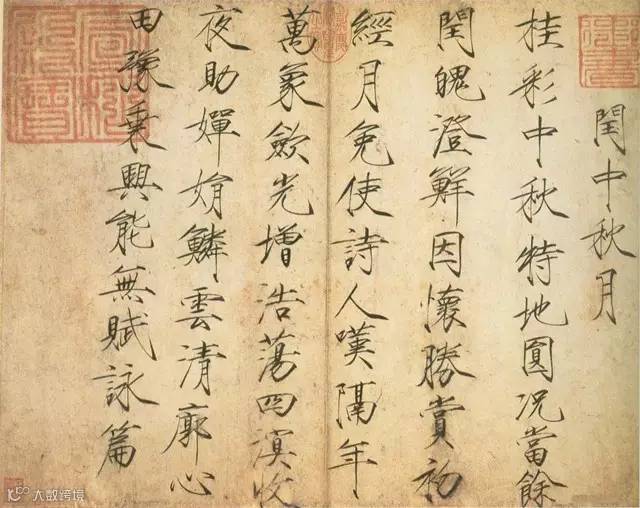 閏中秋月
桂彩中秋特地圓況當餘
閏魄澄鮮因懷勝賞初
經月免使詩人嘆隔年
萬象斂光增浩蕩四溟收
夜助嬋娟鱗雲清廓心
田豫乗興能無賦詠篇
大数跨境